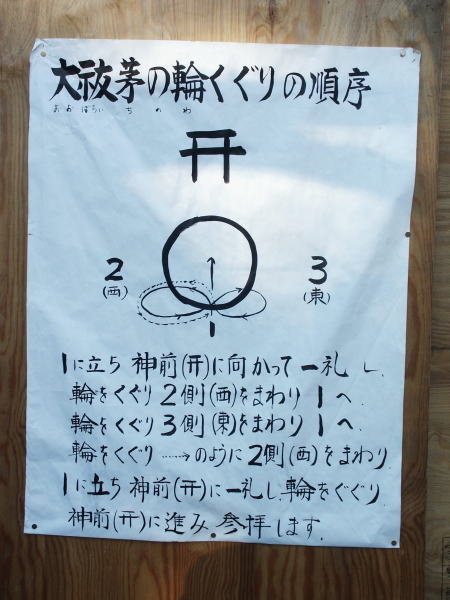 大祓茅の輪くぐりの順序
おおはらい ち の わ
开
2
(西)
3
(東)
1
1に立ち 神前(开)に向かって一礼し、
輪をくぐり 2側(西)をまわり 1へ.
輪をくぐり 3側(東)をまわり 1へ.
輪をくぐり ……→のように 2側(西)をまわり
1に立ち 神前(开)に一礼し、輪をぐぐり
神前(开)に進み 参拝します.